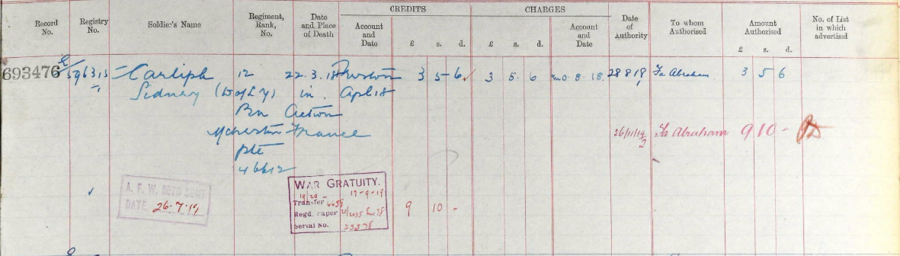 CREDITS CHARGES
Record No. Registry No. Soldier's Name Regiment, Rank, No. Date and Place of Death Account and Date £ s. d. £ s. d. Account and Date Date of Authority To whom Authorised Amount Authorised £ s. d. No. of List in which advertised
693476 Carliph 12 22.3.18 Preston 3 5 6 3 5 6 28 8 19 Fa Abraham 3 5 6
Sidney (D of L Y) in Apl 18
Bn Action
Mchester France 26/11/19 Fa Abraham 9 10 -
Pte
46612
A. F. W. SENT
DATE 26.7.19
WAR GRATUITY.
17-9-19
Transfer
Regd. Paper 9 10 -
Serial No.